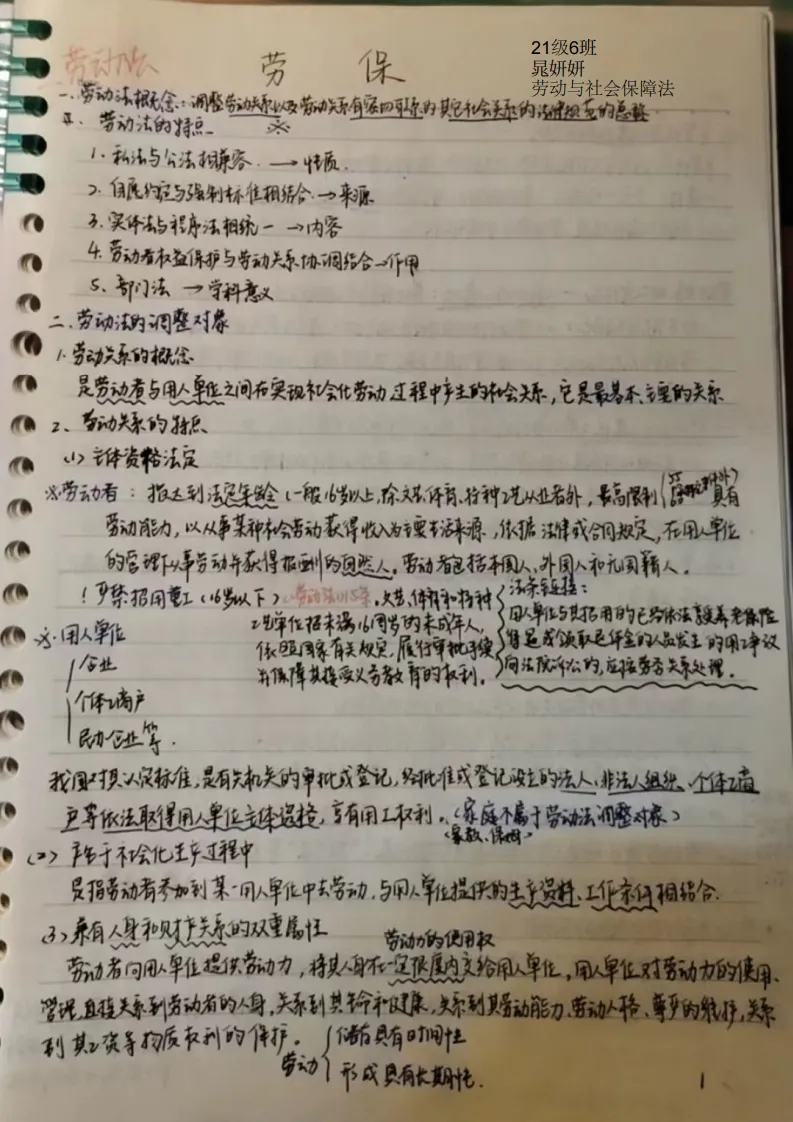 21级6班
晁妍妍
劳动与社会保障法
劳动法
劳 保
一、劳动法概念:调整劳动关系以及劳动关系有密切联系的其它社会关系的法律规范的总称
※
五、劳动法的特点
1. 私法与公法相兼容. →性质.
2. 自愿约定与强制标准相结合.→来源
3. 实体法与程序法相统一 →内容
4. 劳动者权益保护与劳动关系协调结合→作用
5. 部门法 →学科意义
二、劳动法的调整对象
1. 劳动关系的概念
是劳动者与用人单位之间在实现社会化劳动过程中产生的社会关系,它是最基本、主要的关系
2、劳动关系的特点
(1) 主体资格法定
※劳动者:指达到法定年龄(一般16岁以上,除文艺、体育、特种工艺从业者外,最高限制 具有
劳动能力,以从事某种社会劳动获得收入为主要生活来源,依据法律或合同规定,在用人单位
的管理下从事劳动并获得报酬的自然人。劳动者包括本国人、外国人和无国籍人。
!严禁招用童工(16岁以下)劳动法15条.文艺、体育和特种
工艺单位招未满16周岁的未成年人,
依照国家有关规定,履行审批手续
并保障其接受义务教育的权利。
法条链接:
用人单位与其招用的已经依法享受养老保险
待遇或领取退休金的人员发生的用工争议
向法院诉讼的,应按劳务关系处理。
※. 用人单位
企业
个体工商户
民办企业等.
我国对其认定标准,是有关机关的审批或登记,经批准或登记设立的法人、非法人组织、个体工商
户等依法取得用人单位主体资格,享有用工权利。(家庭不属于劳动法调整对象)
(家教、保姆
(2) 产生于社会化生产过程中
是指劳动者参加到某一用人单位中去劳动,与用人单位提供的生产资料、工作条件相结合.
(3) 兼有人身和财产关系的双重属性
劳动力的使用权
劳动者向用人单位提供劳动力,将其人身在一定限度内交给用人单位。用人单位对劳动力的使用、
管理,直接关系到劳动者的人身,关系到其生命和健康,关系到其劳动能力、劳动人格、尊严的维护,关系
到其工资等物质权利的保护。
劳动
储存具有时间性
形成具有长期性.
1